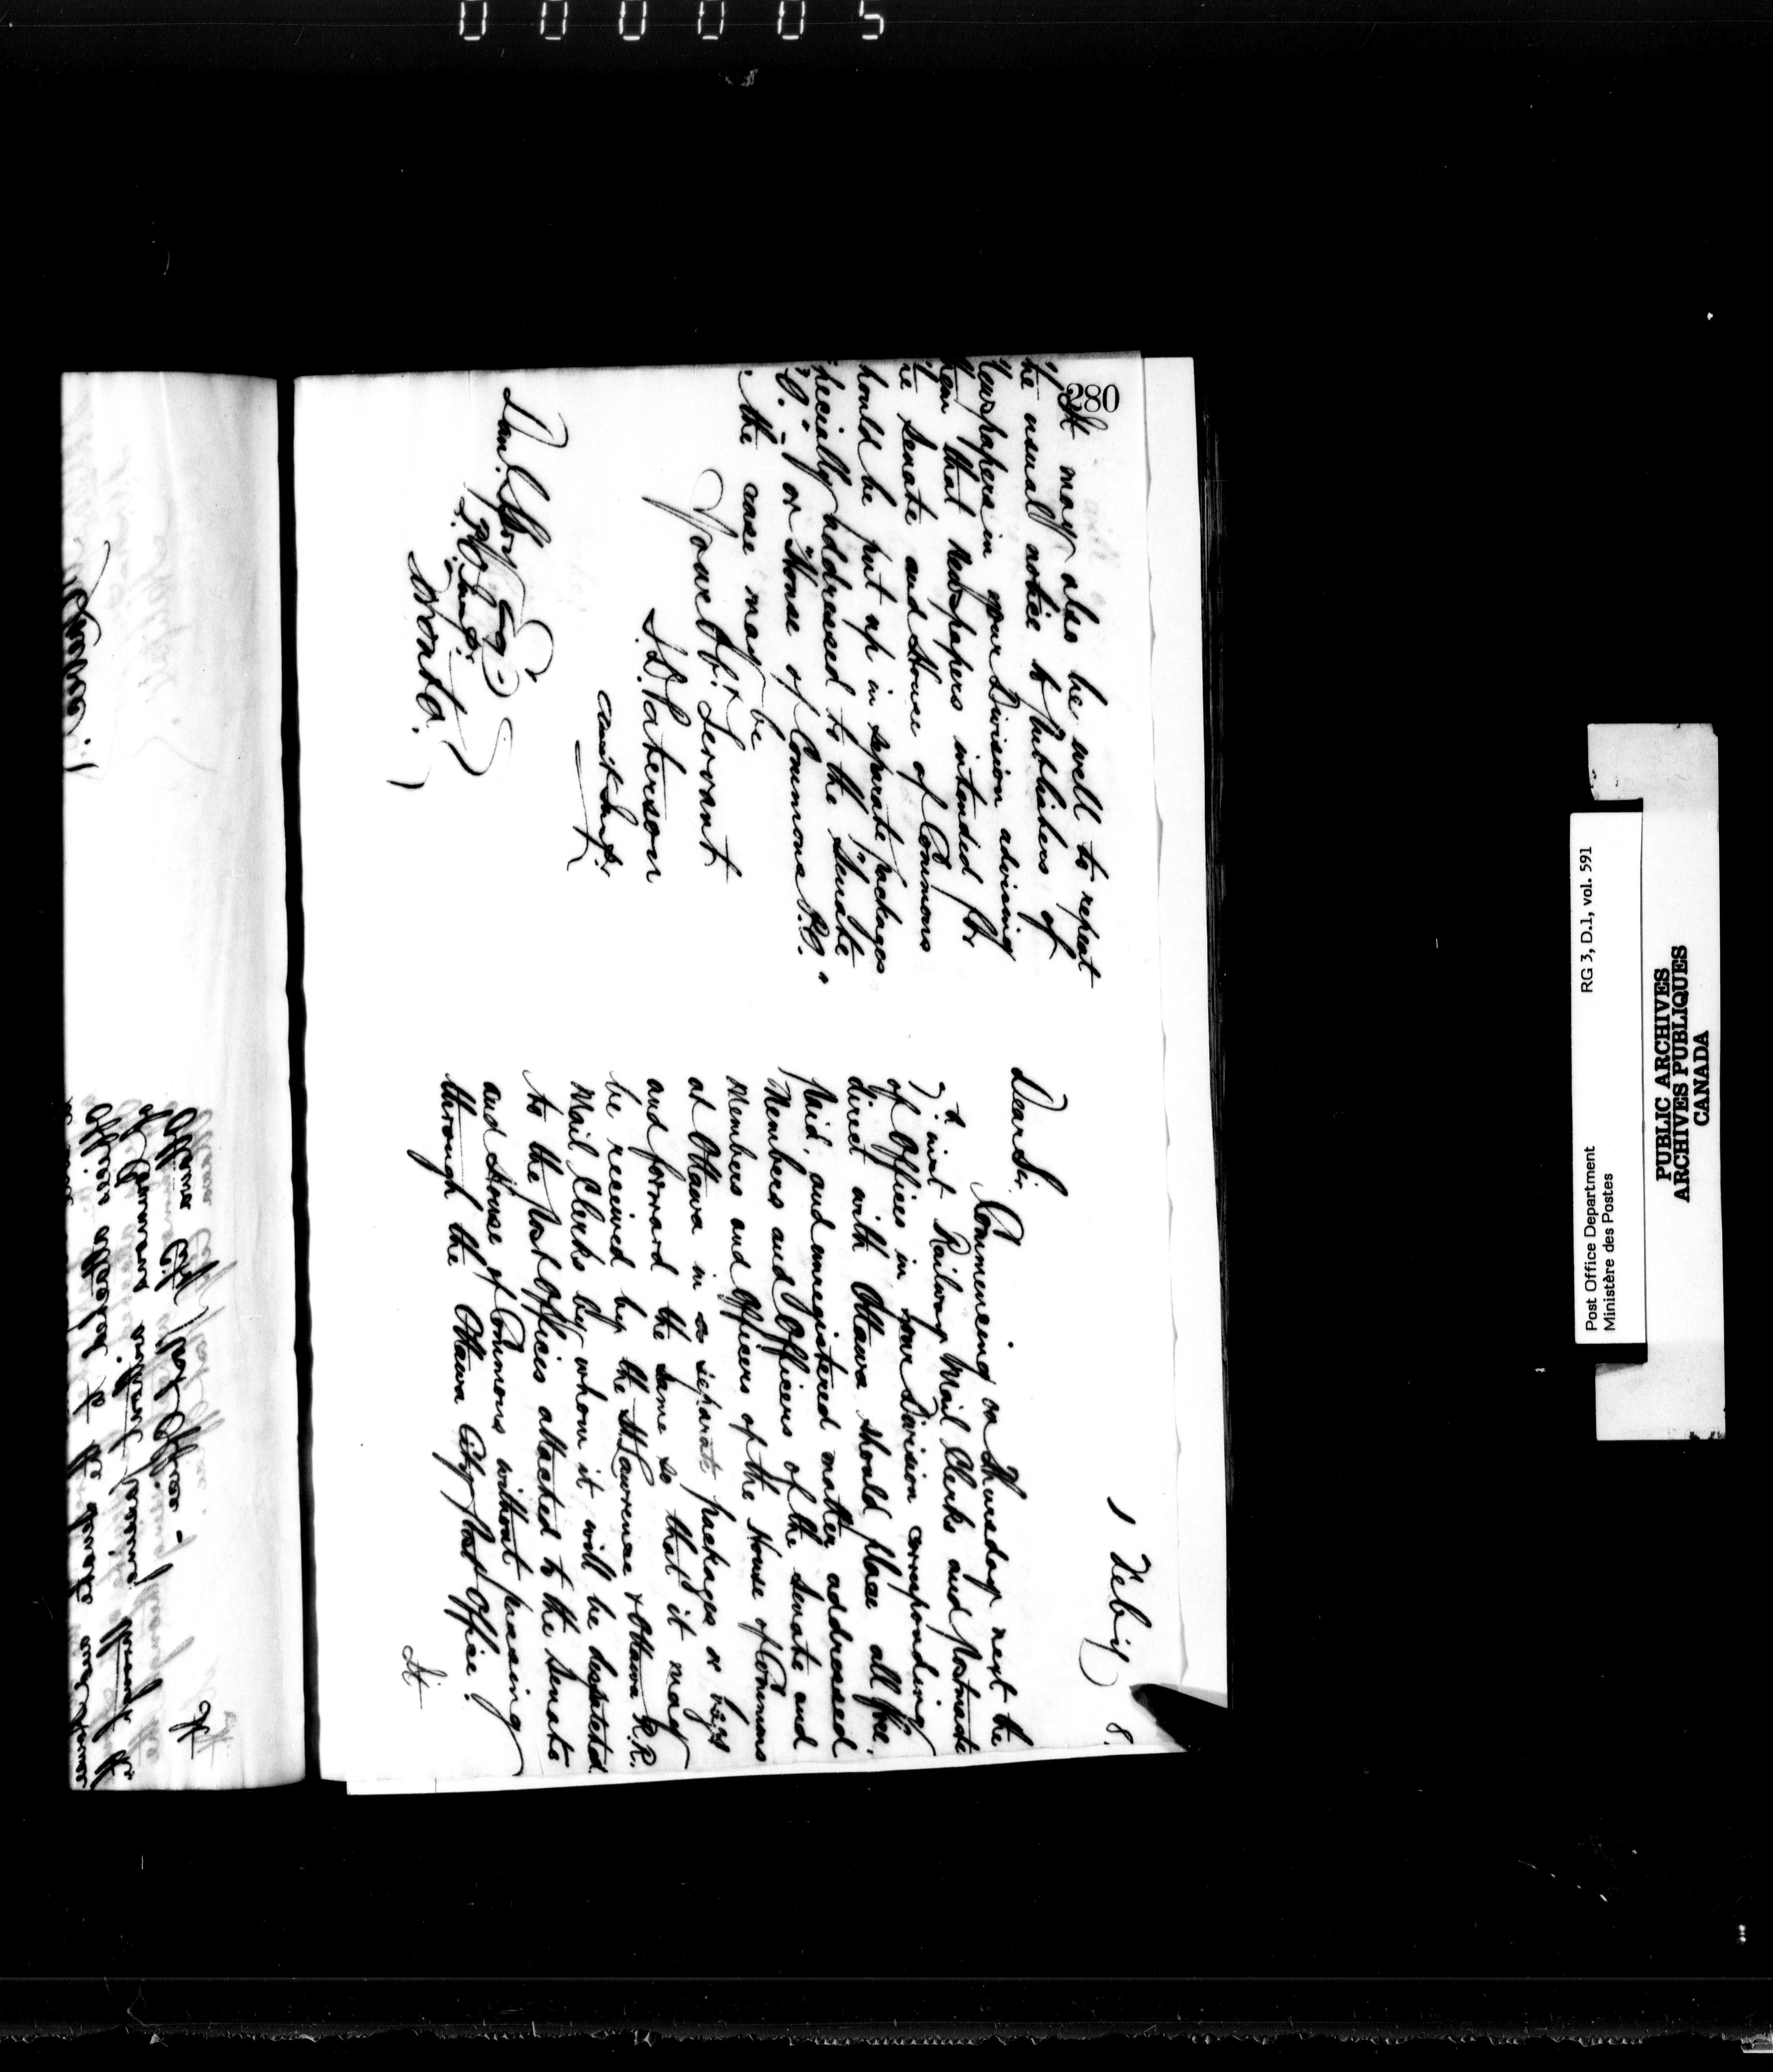 000005
280
It may also be well to repeat
the usual notice to Publishers of
Newspapers in your Division advising
them that Newspapers intended for
the Senate and House of Commons
should be put up in separate packages
specially addressed to the "Senate
P.O." or "House of Commons P.O."
as the case may be
Your Obt. Servant
J.L. Paterson
Danl. Spry Esq
P.O. Insp.
Toronto.
1 Feby 8.
Dear Sir,
Commencing on Thursday next the
7 inst Railway Mail Clerks and Postmasts
of Offices in your Division corresponding
direct with Ottawa should place all free,
paid, and unregistered matter addressed
Members and Officers of the Senate and
Members and Officers of the House of Commons
at Ottawa in separate packages or bags
and forward the same so that it may
be received by the St. Lawrence & Ottawa R.R.
Mail Clerks by whom it will be despatched
to the Post Offices attached to the Senate
and House of Commons without passing
through the Ottawa City Post Office.
It
PUBLIC ARCHIVES
ARCHIVES PUBLIQUES
CANADA
Post Office Department
Ministère des Postes
RG 3, D.1, vol. 591